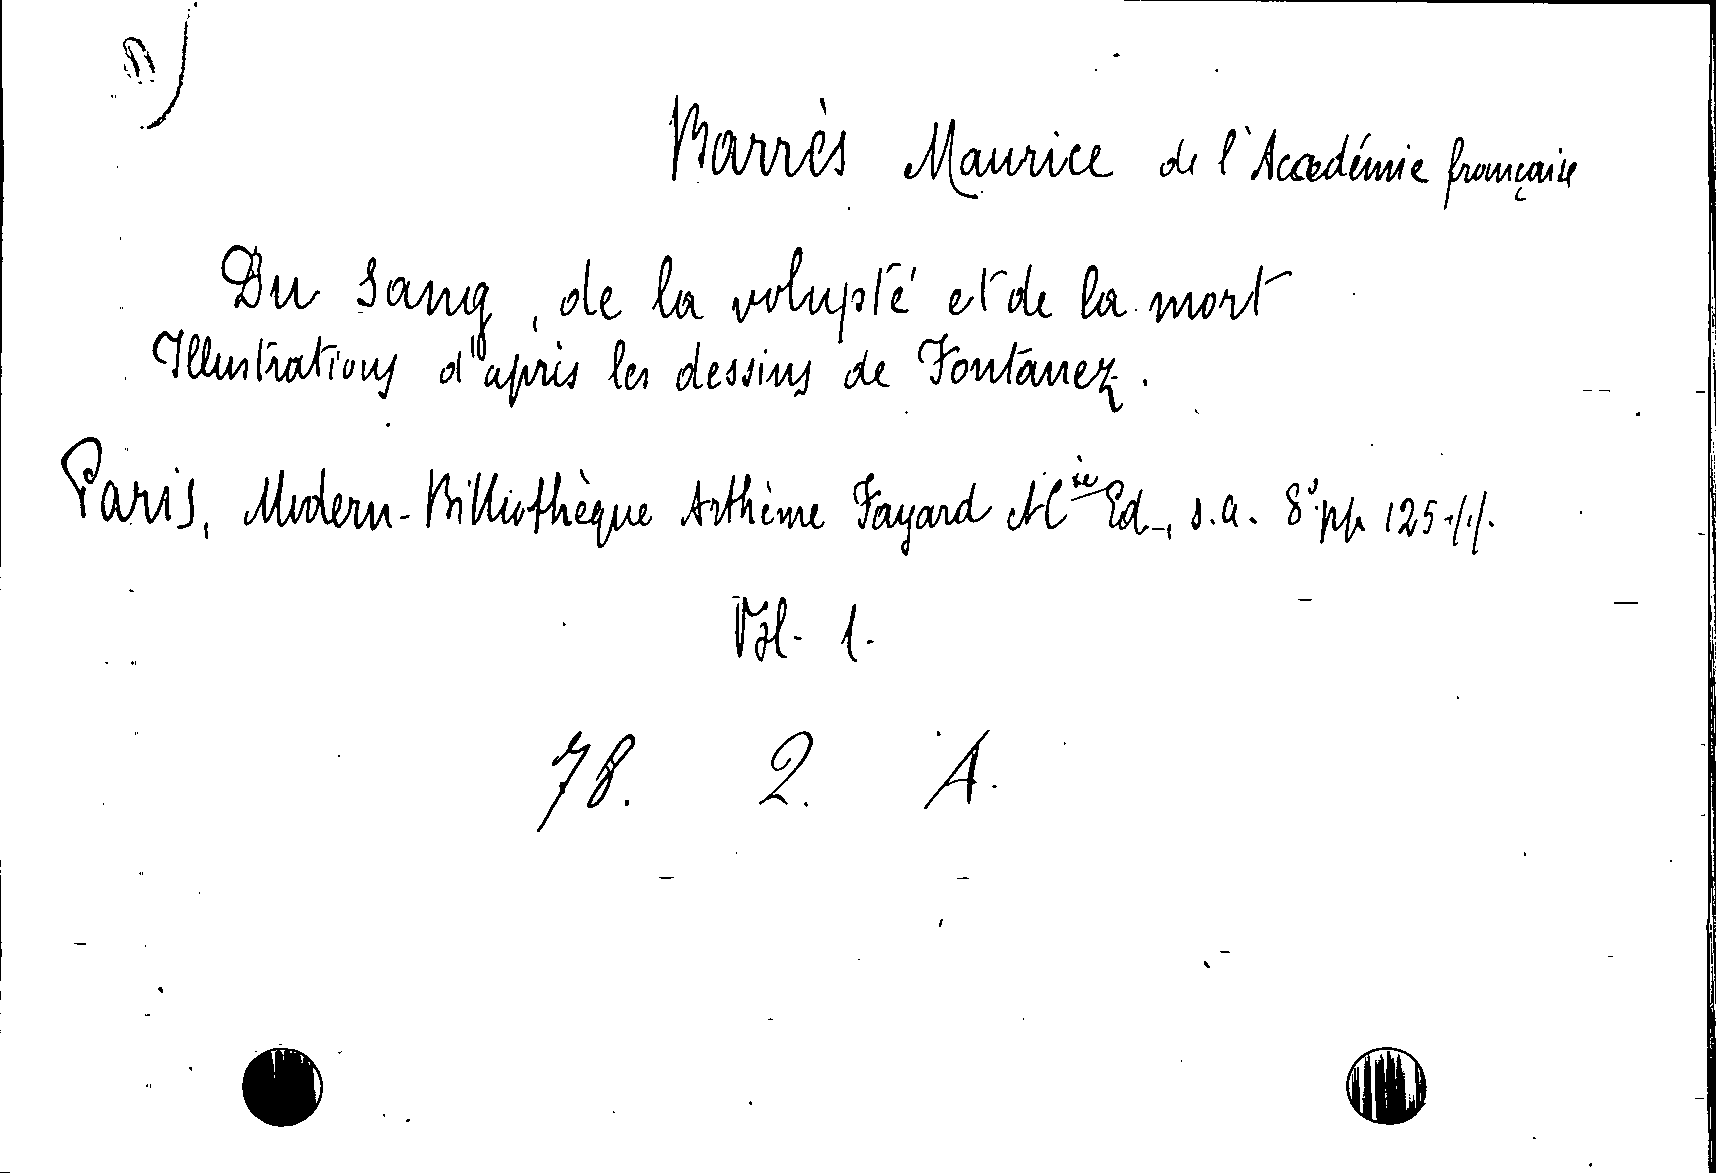 Barrès Maurice de l'Académie française
Du sang, de la volupté et de la mort
Illustrations d'après les dessins de Fontanez.
Paris, Modern-Bibliothèque Arthème Fayard Ed., s.a. 8° pp. 125
Vol. 1.
78. 2. A.